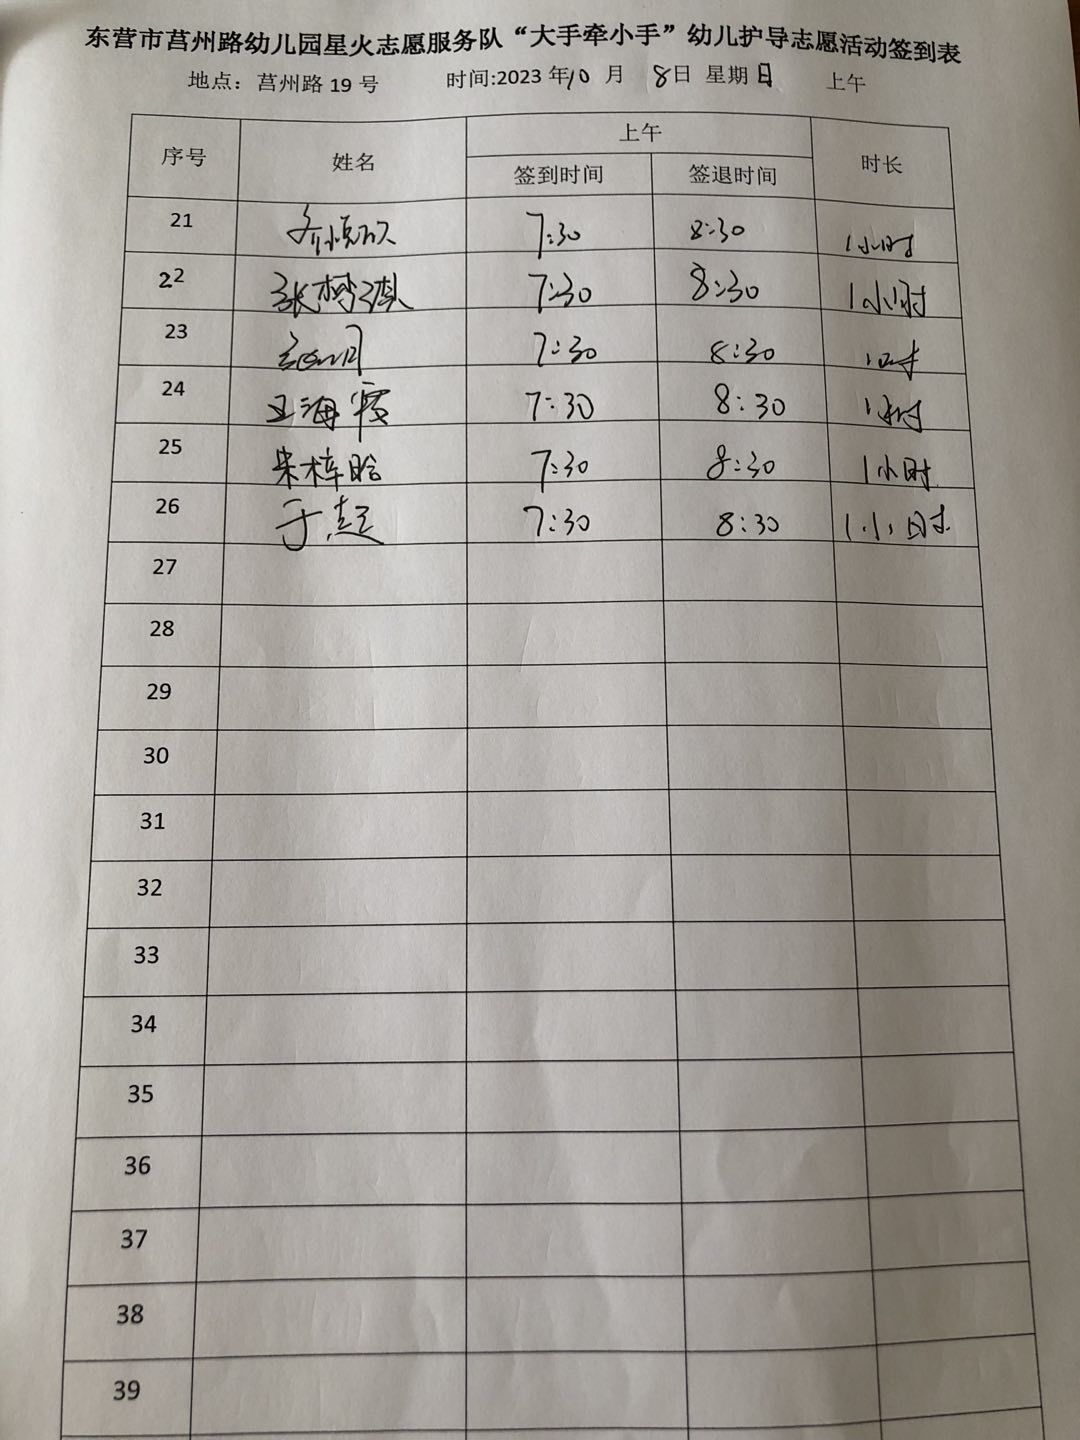 东营市莒州路幼儿园星火志愿服务队“大手牵小手”幼儿护导志愿活动签到表
地点：莒州路 19 号 时间:2023 年10 月 8日 星期日 上午
序号 姓名 上午 时长
签到时间 签退时间
21 7:30 8:30 1小时
22 张梦琪 7:30 8:30 1小时
23 7:30 8:30 1小时
24 王海霞 7:30 8:30 1小时
25 朱梓晗 7:30 8:30 1小时
26 于超 7:30 8:30 1小时
27
28
29
30
31
32
33
34
35
36
37
38
39